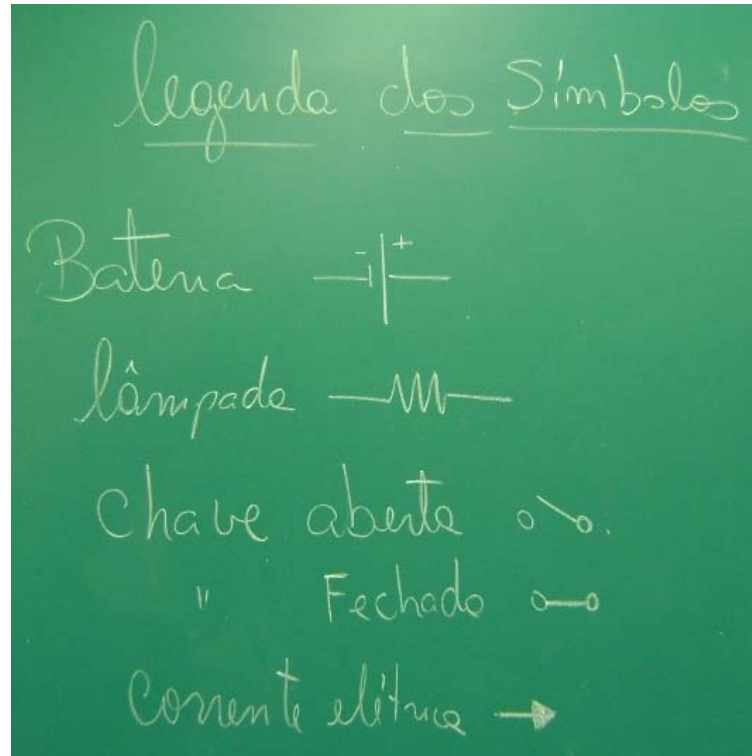 legenda dos Símbolos
- +
Bateria
lâmpada
Chave aberta
" Fechada
Corrente elétrica